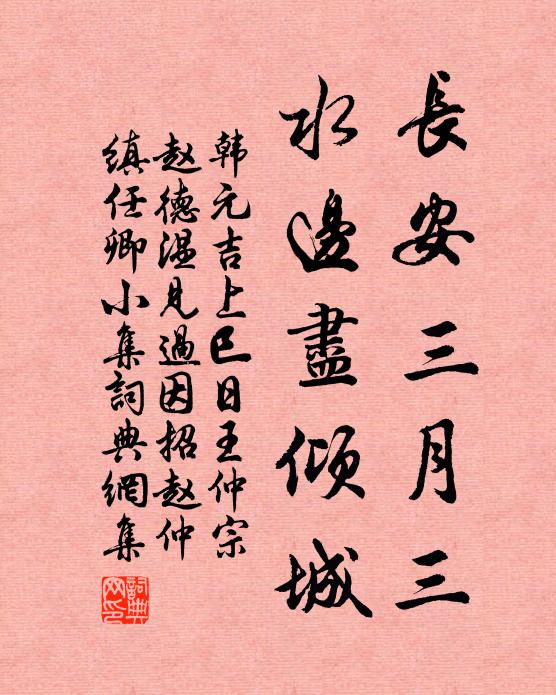 長安三月三
水邊盡傾城
韩元吉上巳日王仲宗
赵德温見過因招赵仲
缜任卿小集詞典網集
詞典網印